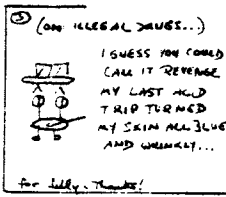 (3) (ON ILLEGAL DRUGS...)
I GUESS YOU COULD
CALL IT REVENGE
MY LAST ACID
TRIP TURNED
MY SKIN ALL BLUE
AND WRINKLY...
for Lilly. Thanks!